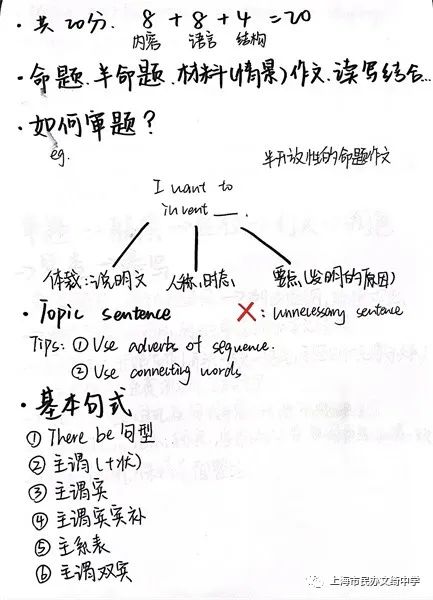 · 共20分. 8 + 8 + 4 = 20
内容 语言 结构
· 命题、半命题、材料(情景)作文、读写结合...
· 如何审题?
eg. 半开放性的命题作文
I want to
invent __.
体裁:说明文 人称、时态 要点(发明的原因)
· Topic sentence ×: unnecessary sentence
Tips: ① Use adverbs of sequence.
② Use connecting words
· 基本句式
① There be 句型
② 主谓(+状)
③ 主谓宾
④ 主谓宾宾补
⑤ 主系表
⑥ 主谓双宾
上海市民办文绮中学